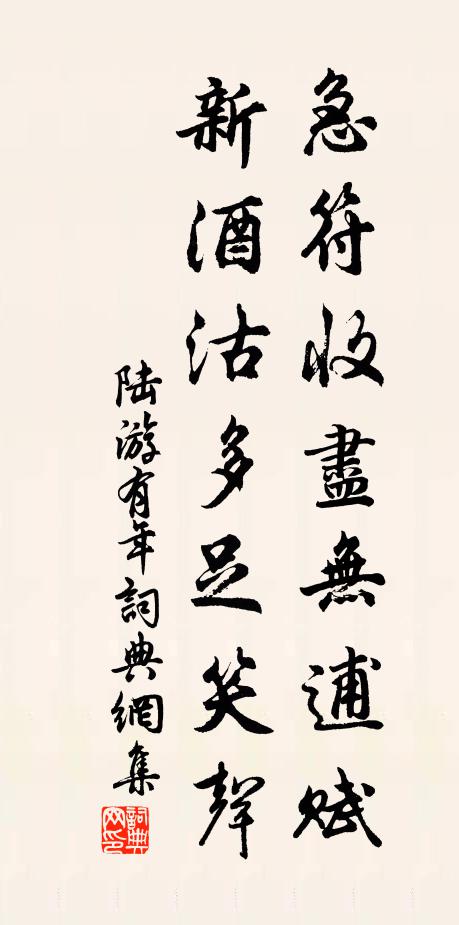 急符收盡無逋賦
新酒沽多足笑聲
陸游有年詞典網集
詞典
网印